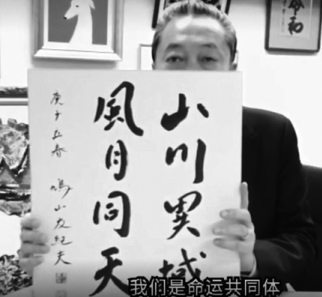 令和
山川異域
風月同天
庚子立春 鳩山友紀夫
我们是命运共同体